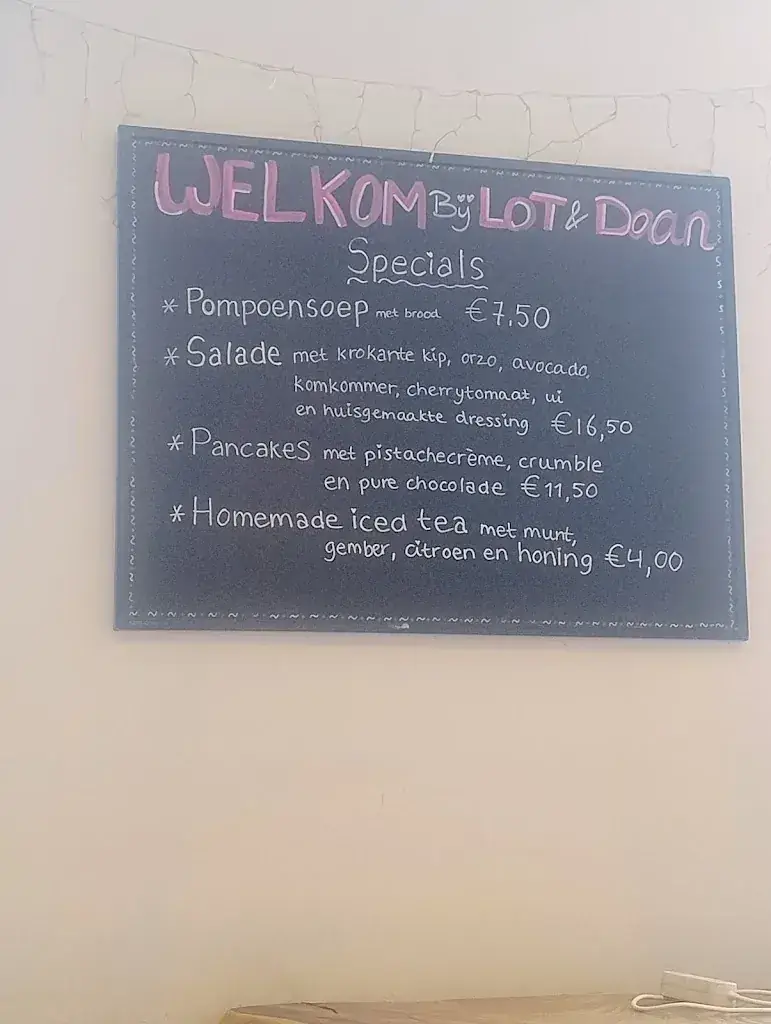 WELKOM Bij LOT & Doan
Specials
* Pompoensoep met brood €7,50
* Salade met krokante kip, orzo, avocado,
komkommer, cherrytomaat, ui
en huisgemaakte dressing €16,50
* Pancakes met pistachecrème, crumble
en pure chocolade €11,50
* Homemade iced tea met munt,
gember, citroen en honing €4,00